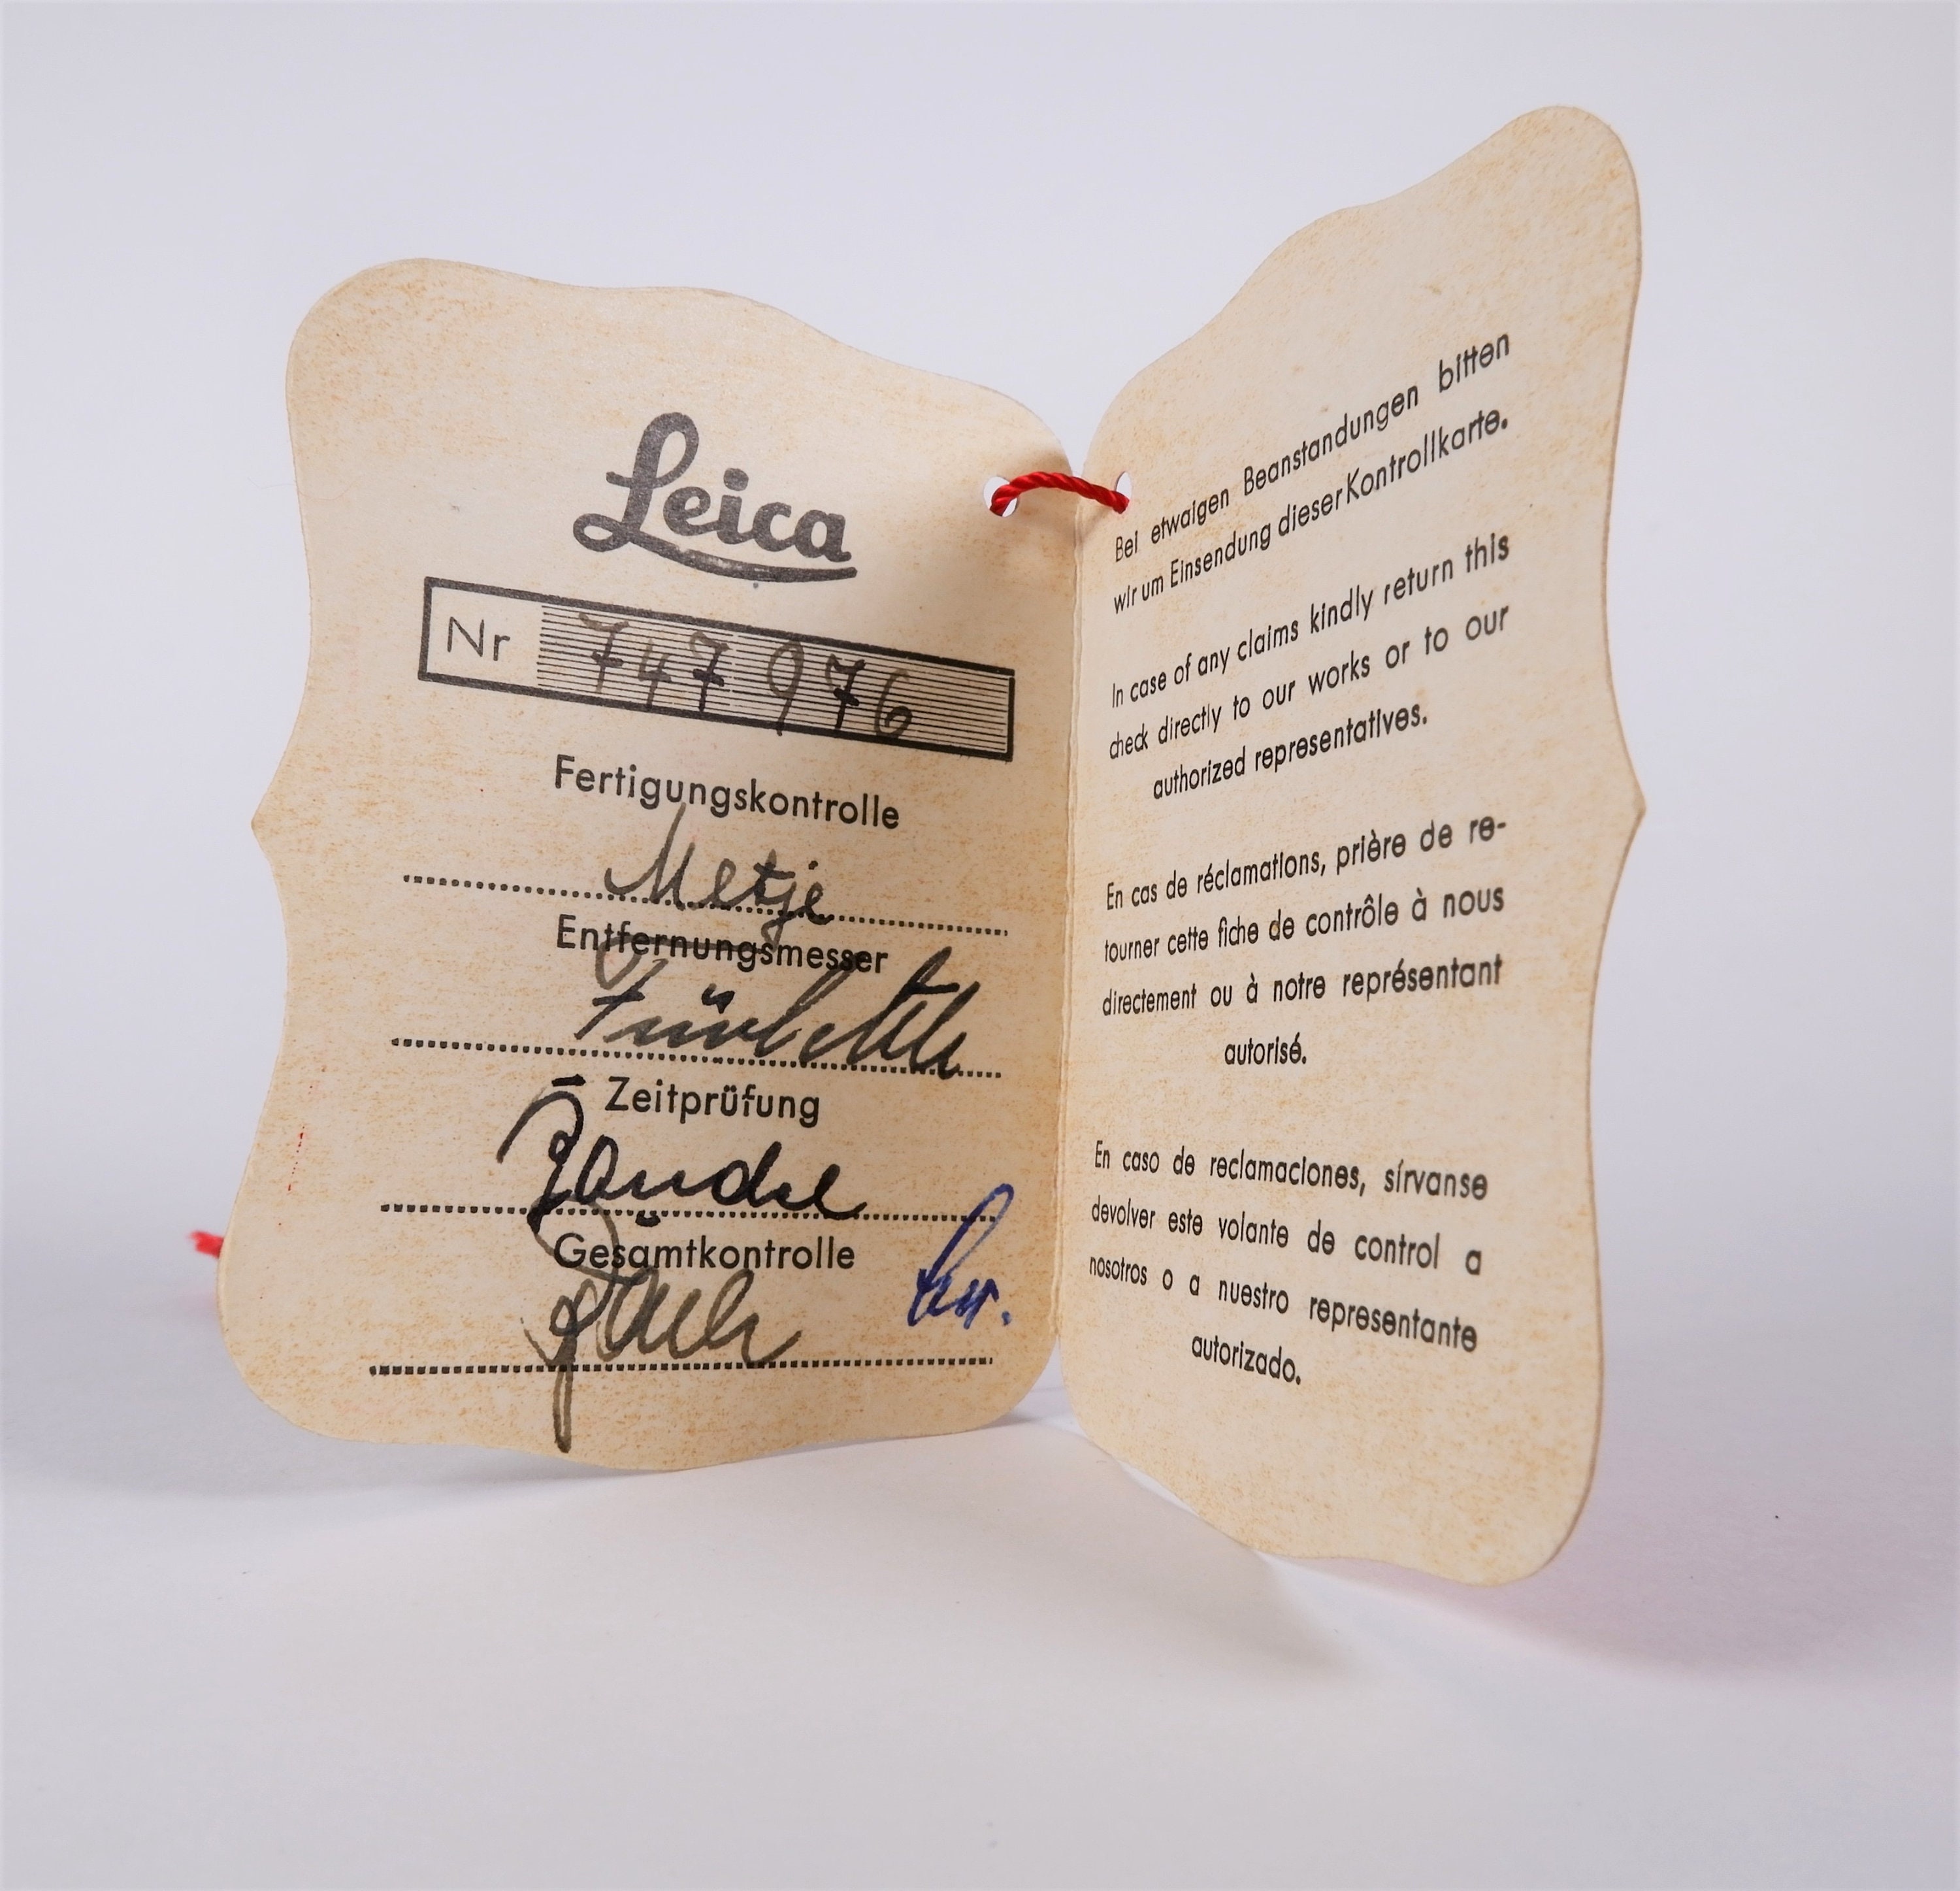 Leica
Nr 747 976
Fertigungskontrolle
Metje
Entfernungsmesser
Zeitprüfung
Gesamtkontrolle
Bei etwaigen Beanstandungen bitten
wir um Einsendung dieser Kontrollkarte.
In case of any claims kindly return this
check directly to our works or to our
authorized representatives.
En cas de réclamations, prière de re-
tourner cette fiche de contrôle à nous
directement ou à notre représentant
autorisé.
En caso de reclamaciones, sírvanse
devolver este volante de control a
nosotros o a nuestro representante
autorizado.